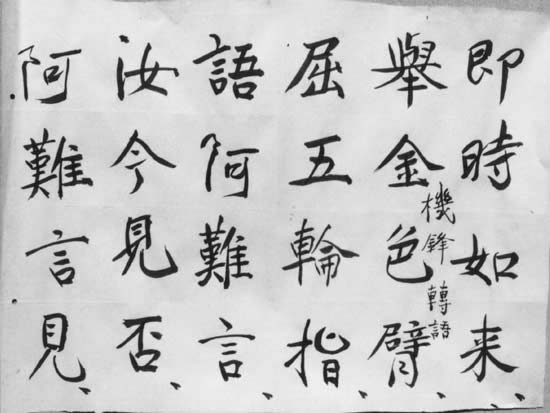 即時如来
舉金色臂
機鋒轉語
屈五輪指
語阿難言
汝今見否
阿難言見